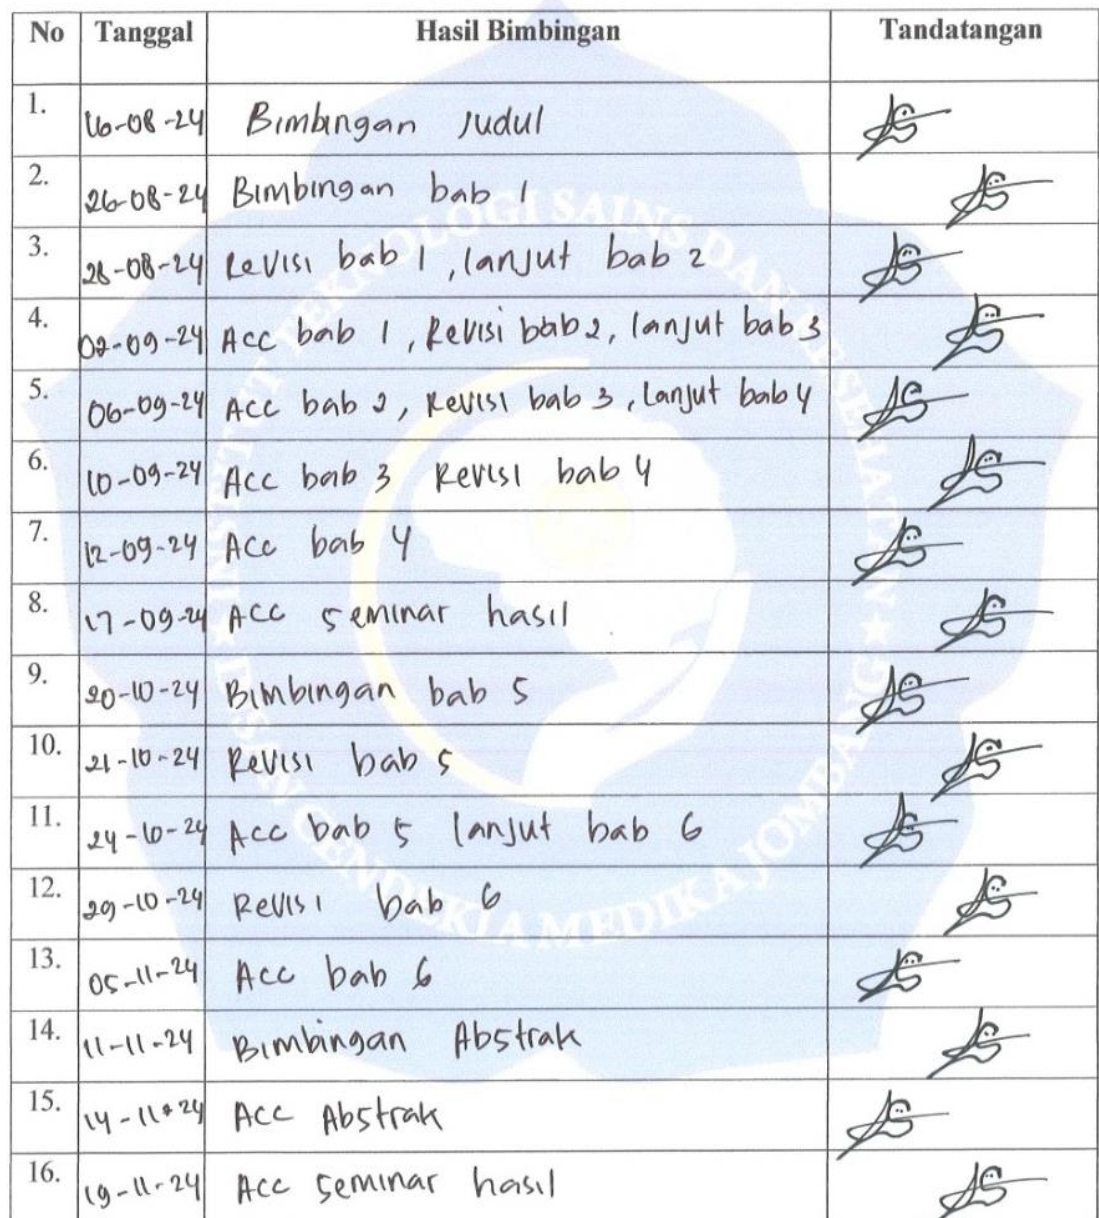 No Tanggal Hasil Bimbingan Tandatangan
1. 16-08-24 Bimbingan Judul
2. 26-08-24 Bimbingan bab 1
3. 28-08-24 Revisi bab 1, lanjut bab 2
4. 02-09-24 Acc bab 1, Revisi bab 2, lanjut bab 3
5. 06-09-24 Acc bab 2, Revisi bab 3, Lanjut bab 4
6. 10-09-24 Acc bab 3 Revisi bab 4
7. 12-09-24 Acc bab 4
8. 17-09-24 Acc seminar hasil
9. 20-10-24 Bimbingan bab 5
10. 21-10-24 Revisi bab 5
11. 24-10-24 Acc bab 5 lanjut bab 6
12. 29-10-24 Revisi bab 6
13. 05-11-24 Acc bab 6
14. 11-11-24 Bimbingan Abstrak
15. 14-11-24 Acc Abstrak
16. 19-11-24 Acc seminar hasil
INSTITUT TEKNOLOGI SAINS DAN KESEHATAN
INSAN CENDEKIA MEDIKA JOMBANG